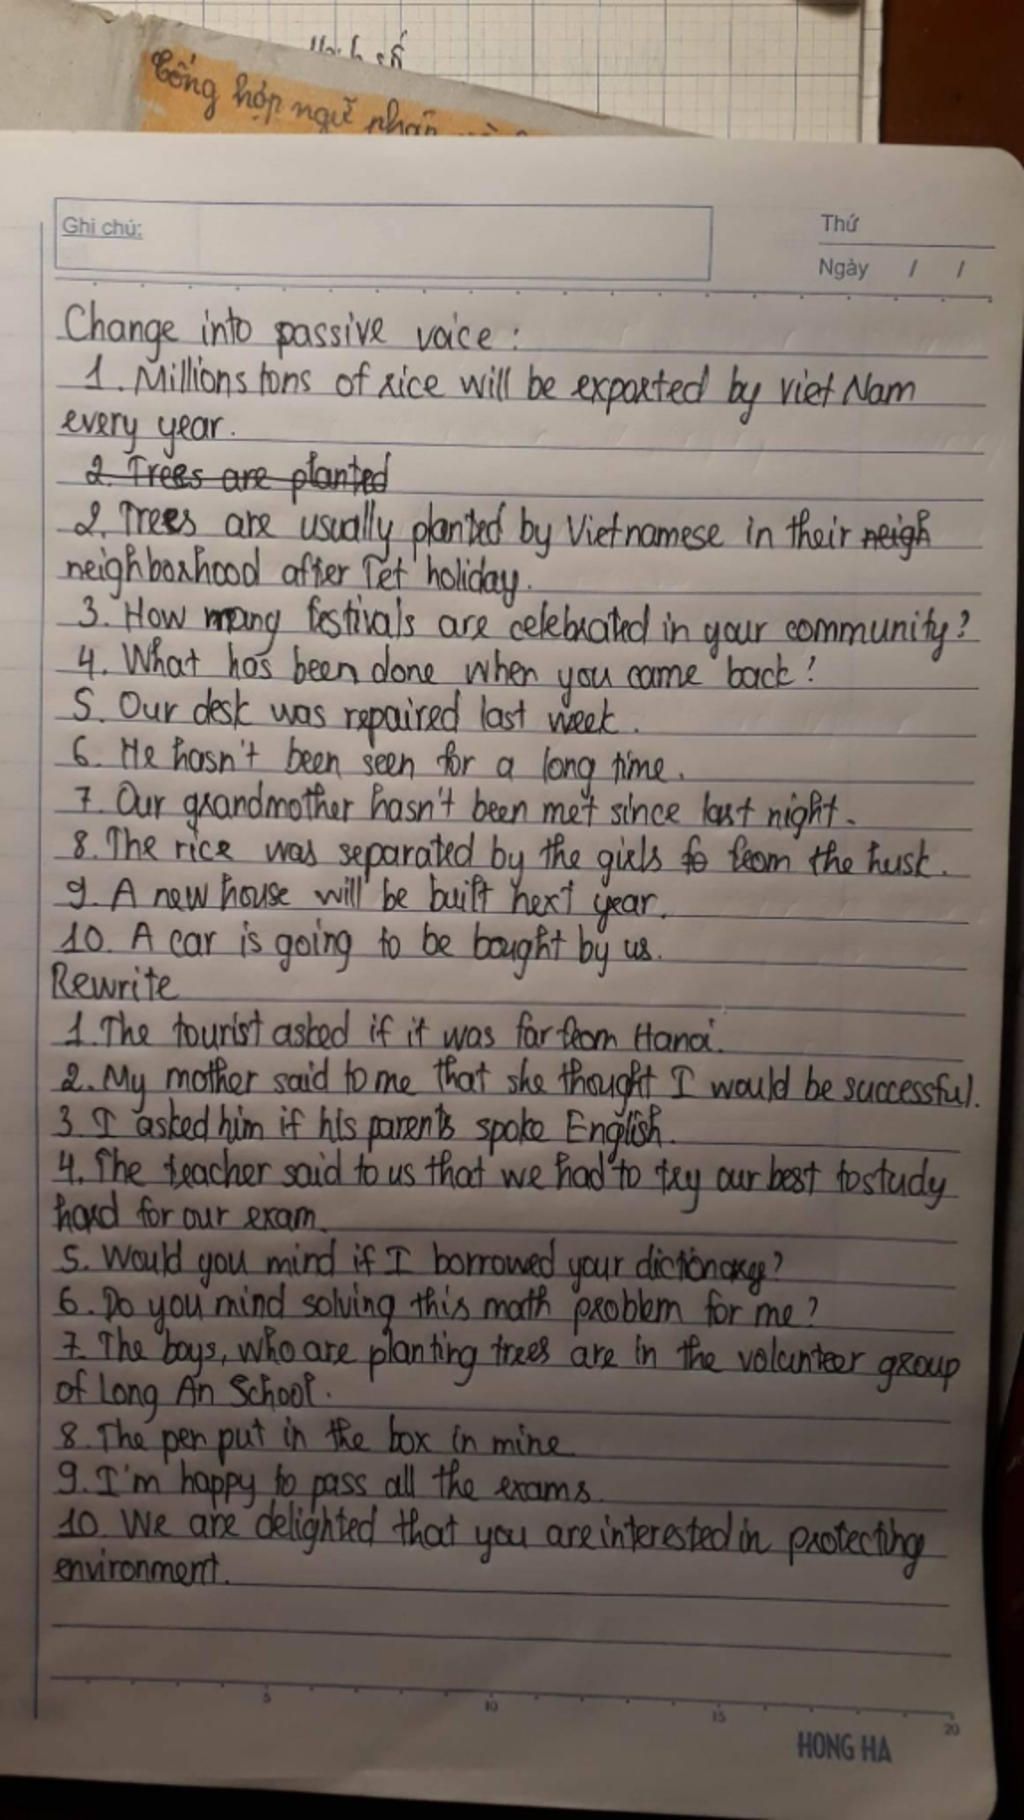 Tổng hợp ngữ pháp
Ghi chú:
Thứ
Ngày / /
Change into passive voice :
1. Millions tons of rice will be exported by Viet Nam
every year.
2. Trees are planted
2. Trees are usually planted by Vietnamese in their neigh
neighborhood after Tet holiday.
3. How many festivals are celebrated in your community?
4. What has been done when you came back?
5. Our desk was repaired last week.
6. He hasn't been seen for a long time.
7. Our grandmother hasn't been met since last night.
8. The rice was separated by the girls fo from the husk.
9. A new house will be built next year.
10. A car is going to be bought by us.
Rewrite
1. The tourist asked if it was far from Hanoi.
2. My mother said to me that she thought I would be successful.
3. I asked him if his parents spoke English.
4. The teacher said to us that we had to try our best to study
hard for our exam.
5. Would you mind if I borrowed your dictionary?
6. Do you mind solving this math problem for me?
7. The boys, who are planting trees are in the volunteer group
of Long An School.
8. The pen put in the box in mine
9. I'm happy to pass all the exams.
10. We are delighted that you are interested in protecting
environment.
5 10 15 20
HONG HA